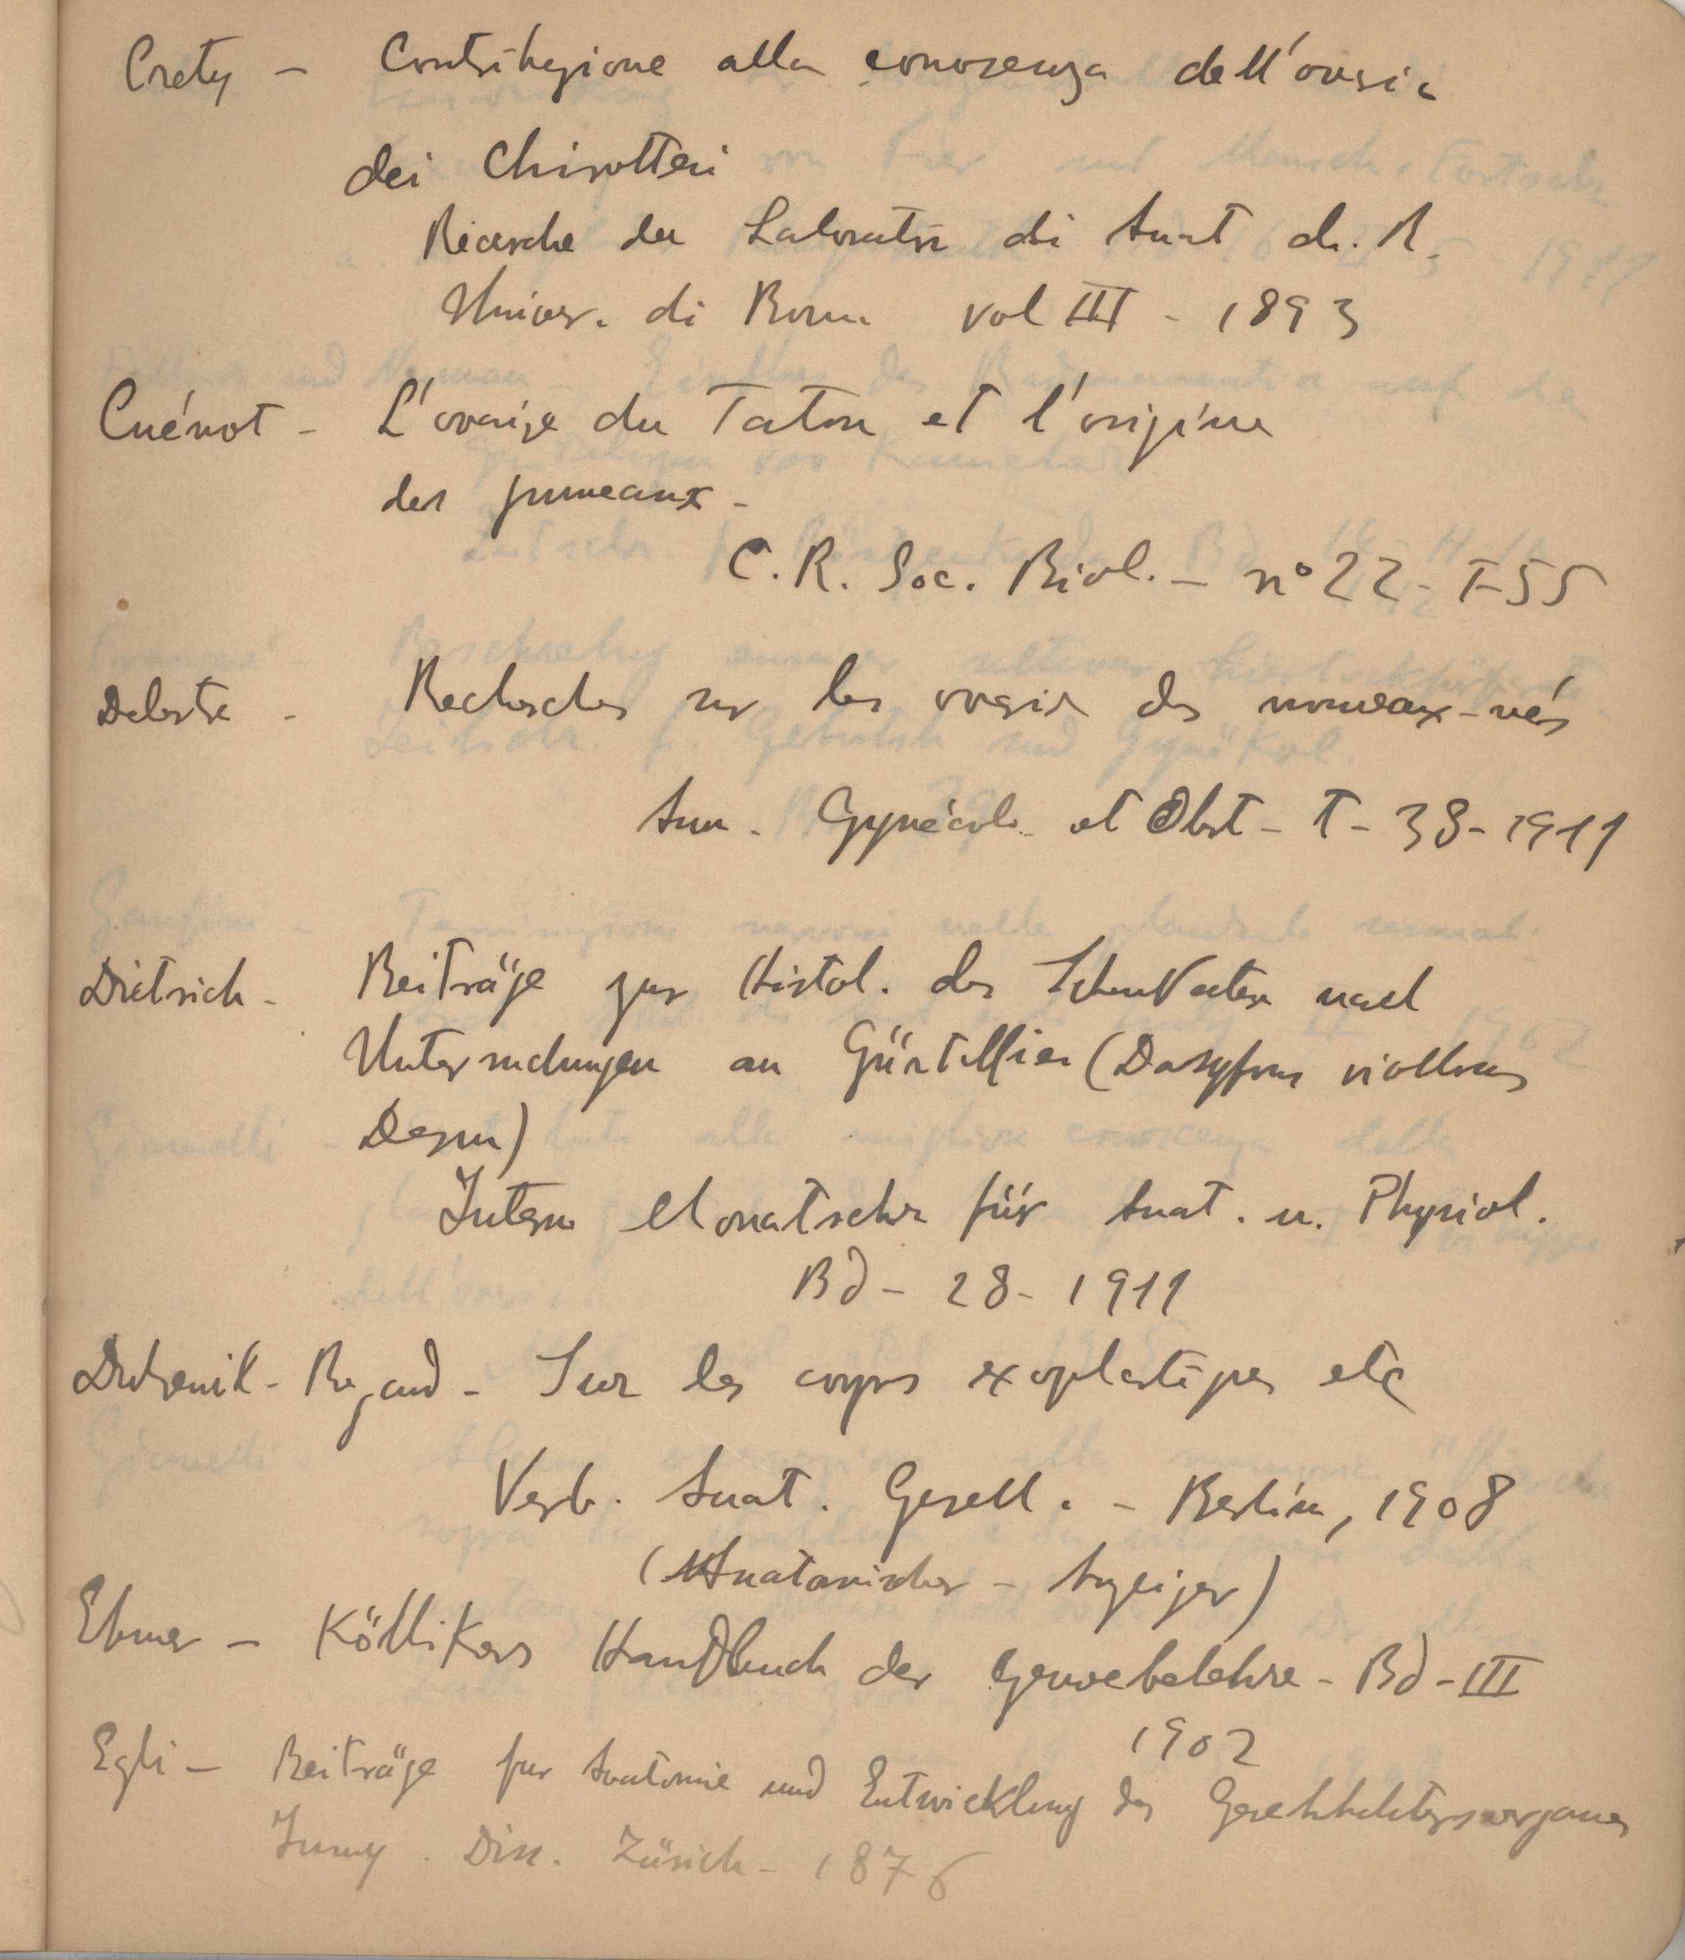 Crety - Contribuzione alla conoscenza dell'ovaia
dei Chirotteri
Ricerche del Laborator di Anat d. R.
Univer. di Roma vol III - 1893
Cuénot - L'ovaire du Tatou et l'origine
des jumeaux -
C. R. Soc. Biol. - n° 22 - T-55
Delestre - Recherches sur les ovaires des nouveaux-nés
Ann. Gynécol. et Obst - T - 38 - 1911
Dietrich - Beiträge zur Histol. des nach
Untersuchungen an Gürteltier (Dasypus villosus
Desm)
Intern Monatschr für Anat. u. Physiol.
Bd - 28 - 1911
Regaud - Sur les corps exoplastiques etc
Verh. Anat. Gesell. - Berlin, 1908
(Anatomischer - Anzeiger)
Ebner - Köllikers Handbuch der Gewebelehre - Bd - III
1902
Egli - Beiträge zur Anatomie und Entwicklung der Geschlechtsorgane
Inaug. Diss. Zürich - 1876